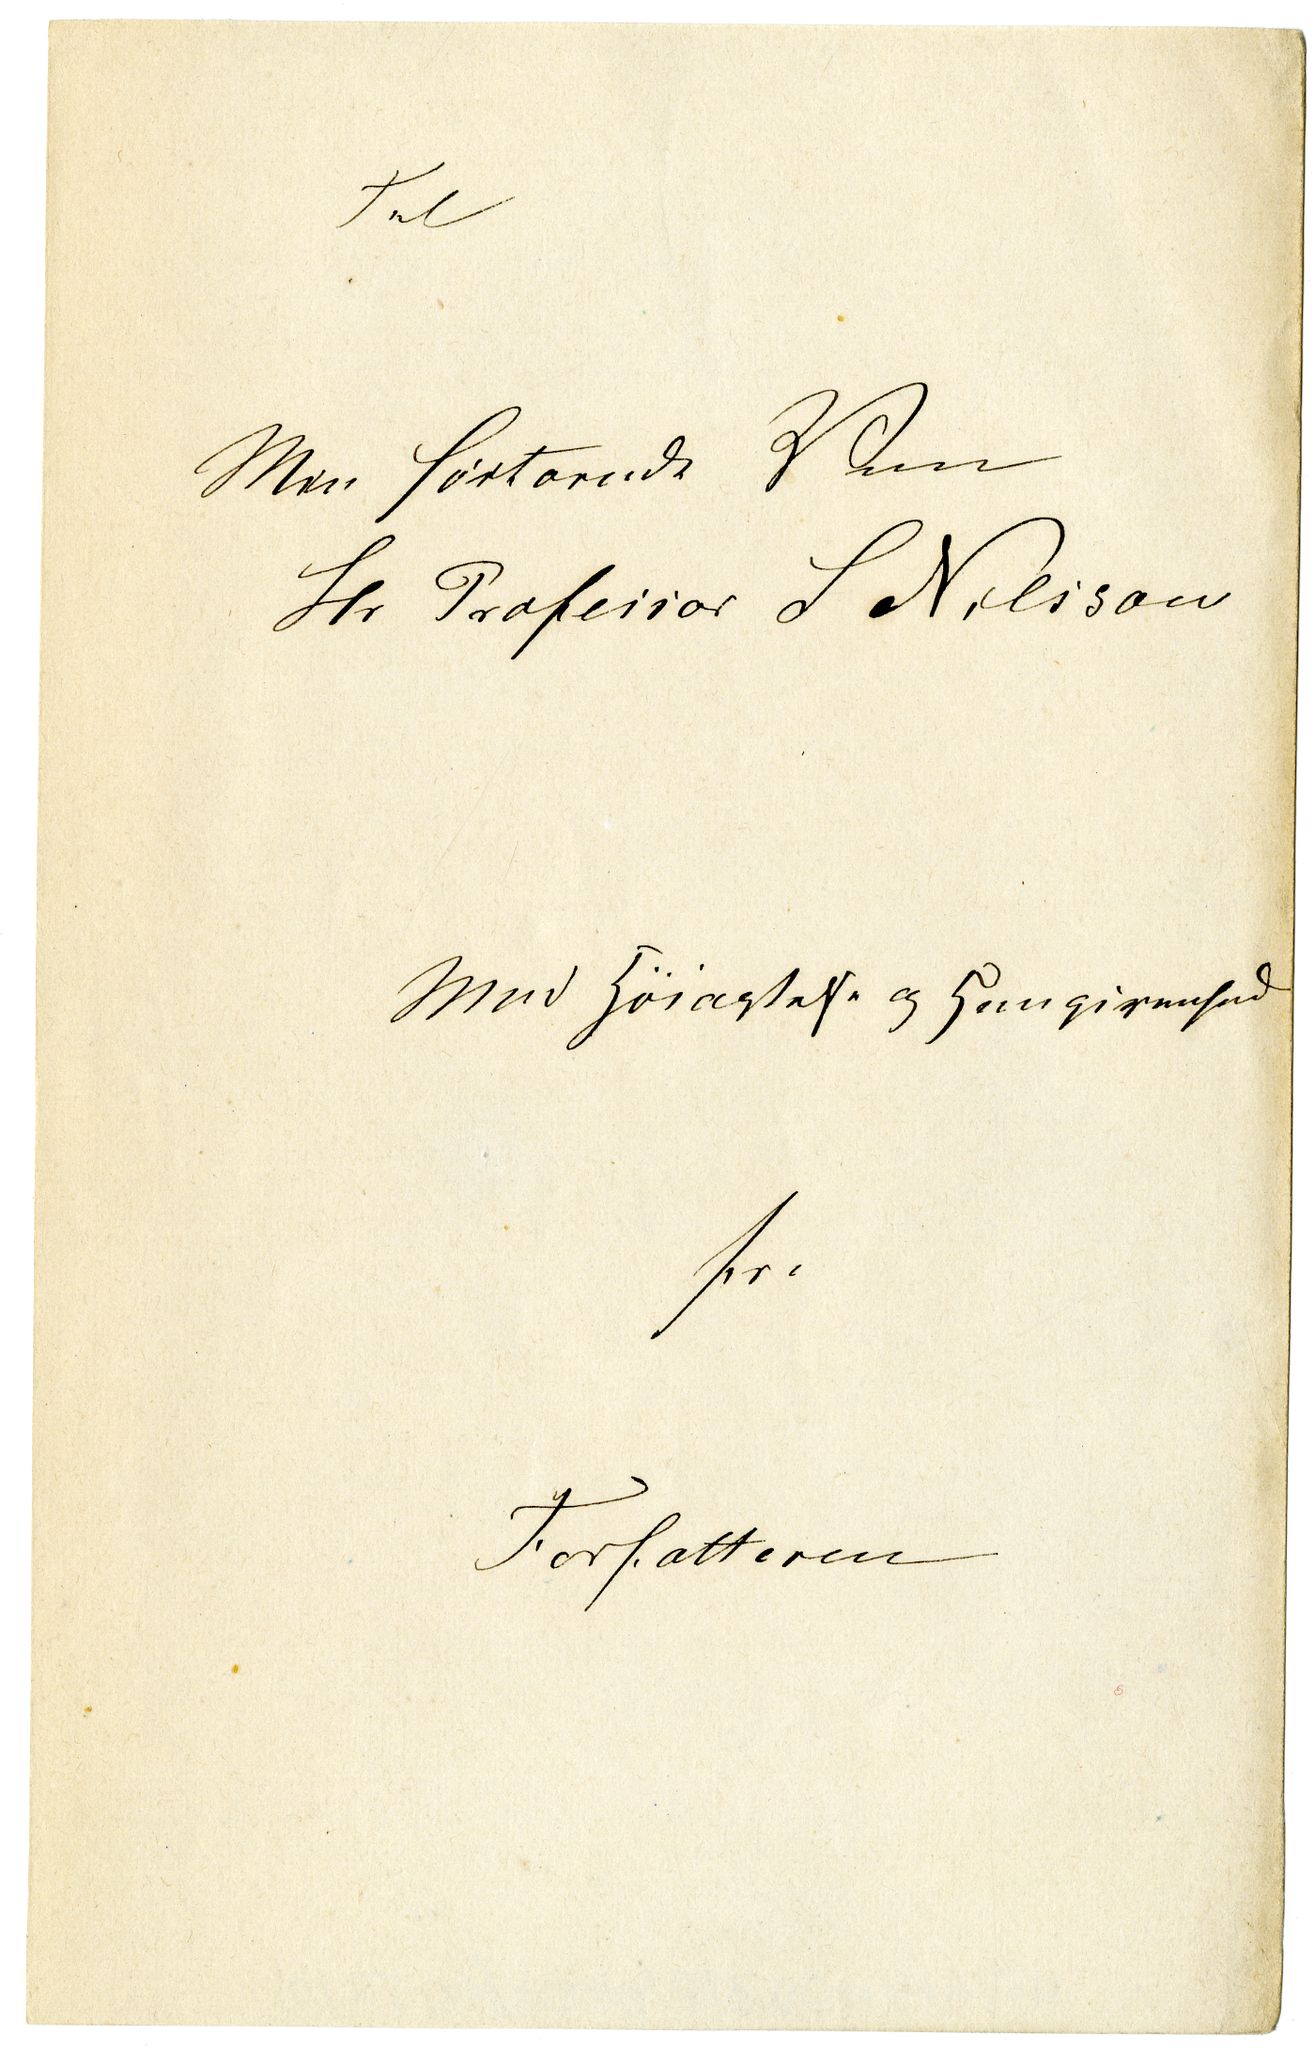 Til
Min høitærede Ven
Hr Professor S Nilsson
Med Höiagtelse og Hengivenhed
fra
Forfatteren